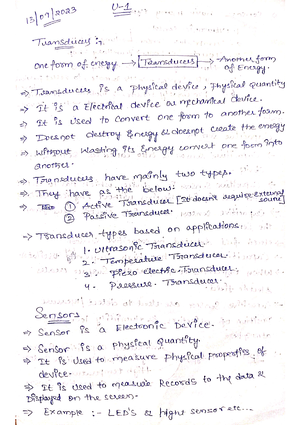 13/07/2023
U-1
Transducers :-
one form of energy → Transducers → Another form of Energy.
⇒ Transducers is a physical device, Physical quantity
⇒ It is a Electrical device or mechanical device.
⇒ It is used to Convert one form to another form.
⇒ Doesnot destroy Energy & doesnot create the energy
⇒ Without Wasting its Energy convert one form into
another.
⇒ Transducers have mainly two types.
⇒ They have as the below:
⇒ ① Active Transducer [It doesn't require external source]
② Passive Transducer
⇒ Transducer types based on applications.
1. Ultrasonic Transducer
2. Temperature Transducer
3. Piezo electric Transducer
4. Pressure Transducer
Sensors
⇒ Sensor is a Electronic Device.
⇒ Sensor is a physical quantity
⇒ It is used to measure physical properties of
device.
⇒ It is used to measure Records to the data &
Displayed on the screen.
⇒ Example :- LED's & light sensor etc...